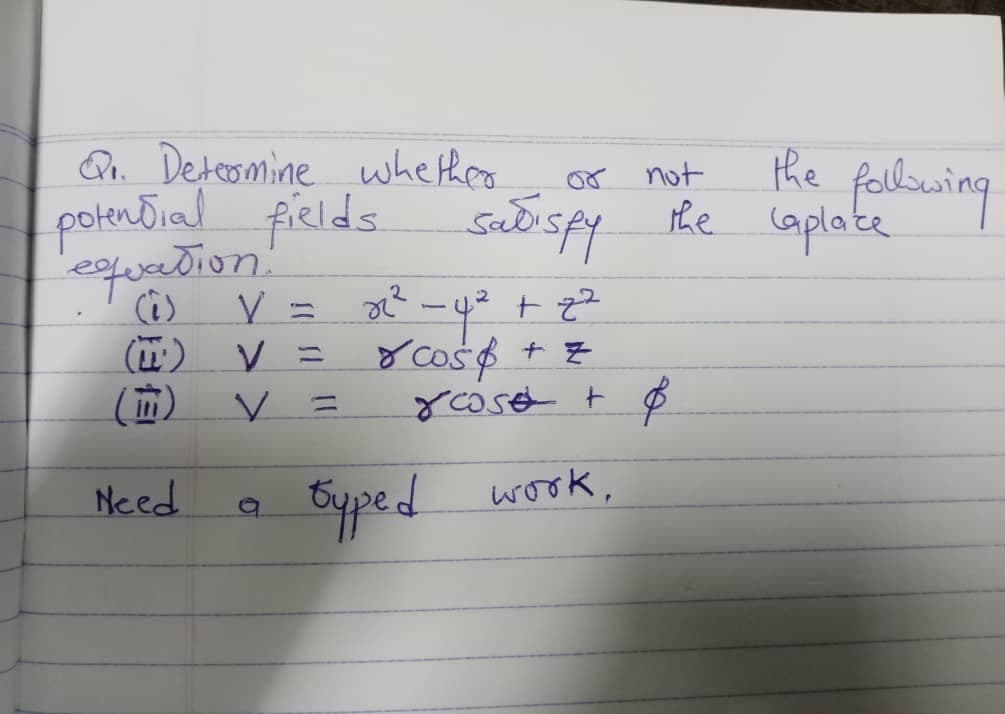 Q1. Determine whether or not the following
potential fields satisfy the Laplace
equation.
(i) V = x² - y² + z²
(ii) V = r cosϕ + z
(iii) V = r cosθ + ϕ
Need a typed work.